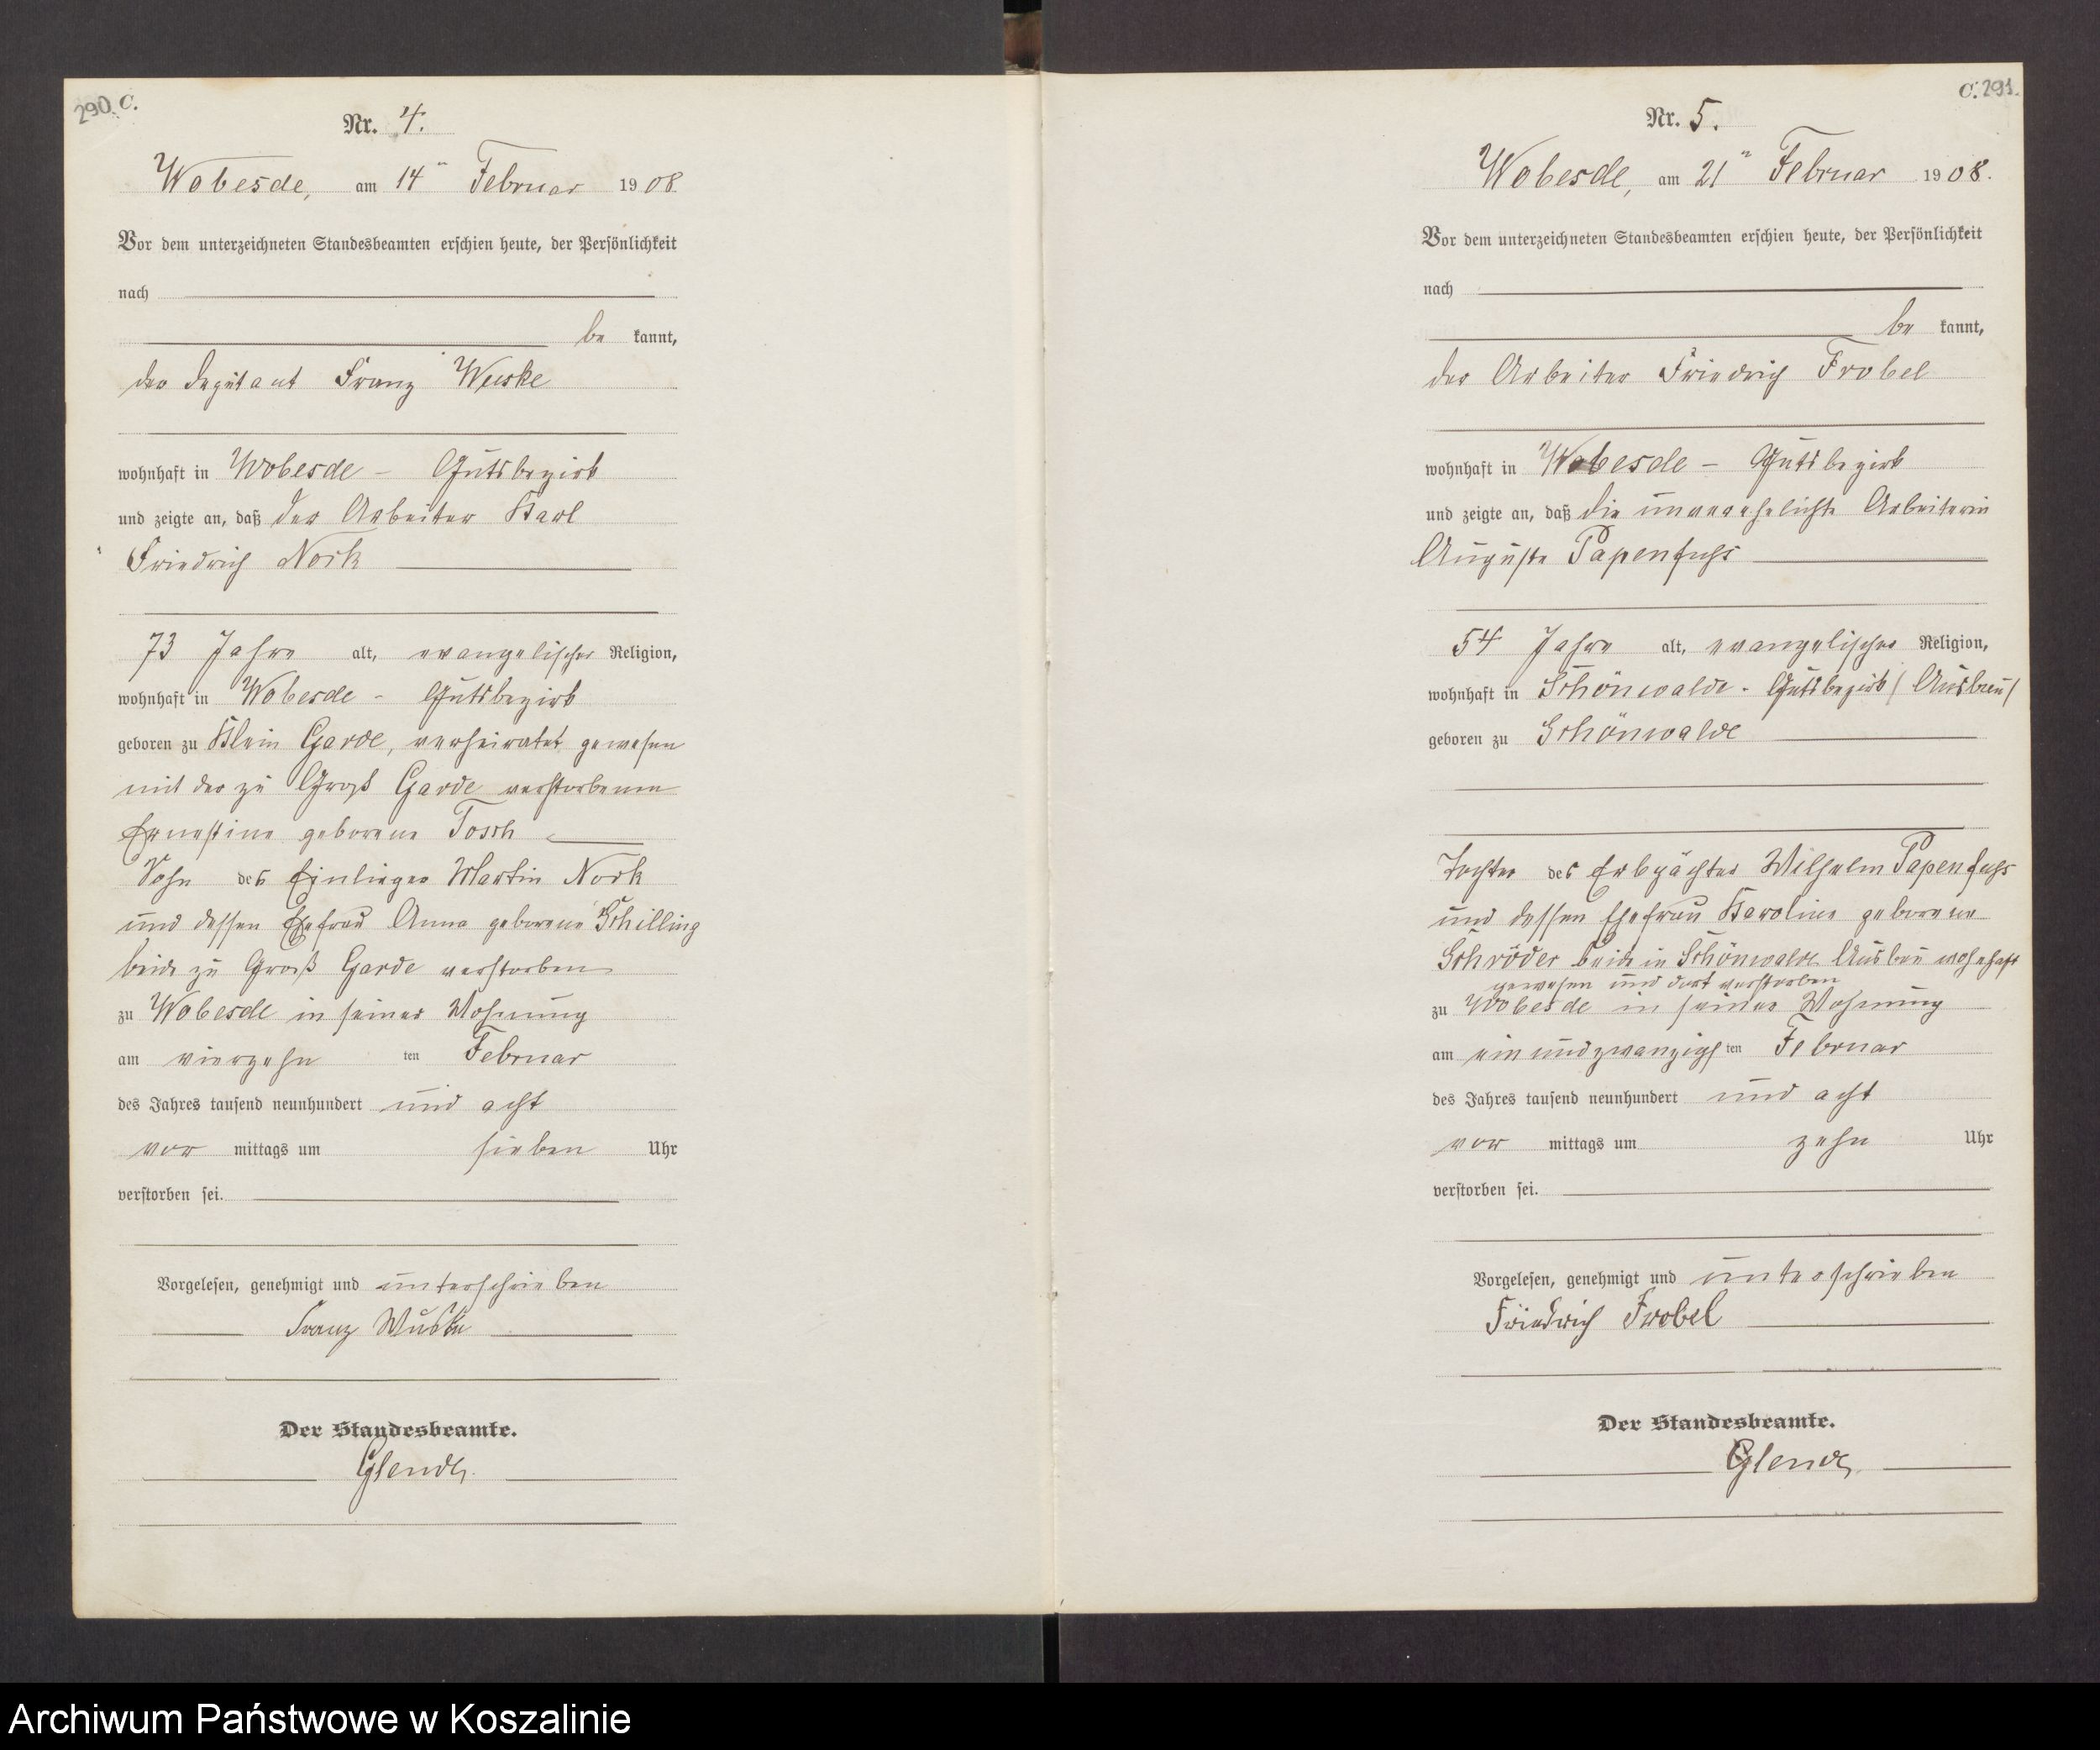 290. C.
Nr. 4.
Wobesde, am 14ten Februar 1908.
Vor dem unterzeichneten Standesbeamten erschien heute, der Persönlichkeit
nach
be kannt,
der Deputant Franz Wuske
wohnhaft in Wobesde - Gutsbezirk
und zeigte an, daß der Arbeiter Karl
Friedrich Nork
73 Jahre alt, evangelischer Religion,
wohnhaft in Wobesde - Gutsbezirk
geboren zu Klein Garde, verheiratet gewesen
mit der zu Groß Garde verstorbenen
Ernestine geborene Tosch
Sohn des Einlieger Martin Nork
und dessen Ehefrau Anna geborene Schilling
beide zu Groß Garde verstorben
zu Wobesde in seiner Wohnung
am vierzehn ten Februar
des Jahres tausend neunhundert und acht
vor mittags um sieben Uhr
verstorben sei.
Vorgelesen, genehmigt und unterschrieben
Franz Wuske
Der Standesbeamte.
C. 291.
Nr. 5.
Wobesde, am 21ten Februar 1908.
Vor dem unterzeichneten Standesbeamten erschien heute, der Persönlichkeit
nach
be kannt,
der Arbeiter Friedrich Frobel
wohnhaft in Wobesde - Gutsbezirk
und zeigte an, daß die unverehelichte Arbeiterin
Auguste Papenfuhs
54 Jahre alt, evangelischer Religion,
wohnhaft in Schönwalde - Gutsbezirk / Ausbau /
geboren zu Schönwalde
Tochter des Erbpächter Wilhelm Papenfuhs
und dessen Ehefrau Karoline geborene
Schröder beide in Schönwalde Ausbau wohnhaft
gewesen und dort verstorben
zu Wobesde in seiner Wohnung
am einundzwanzigs ten Februar
des Jahres tausend neunhundert und acht
vor mittags um zehn Uhr
verstorben sei.
Vorgelesen, genehmigt und unterschrieben
Friedrich Frobel
Der Standesbeamte.
Archiwum Państwowe w Koszalinie